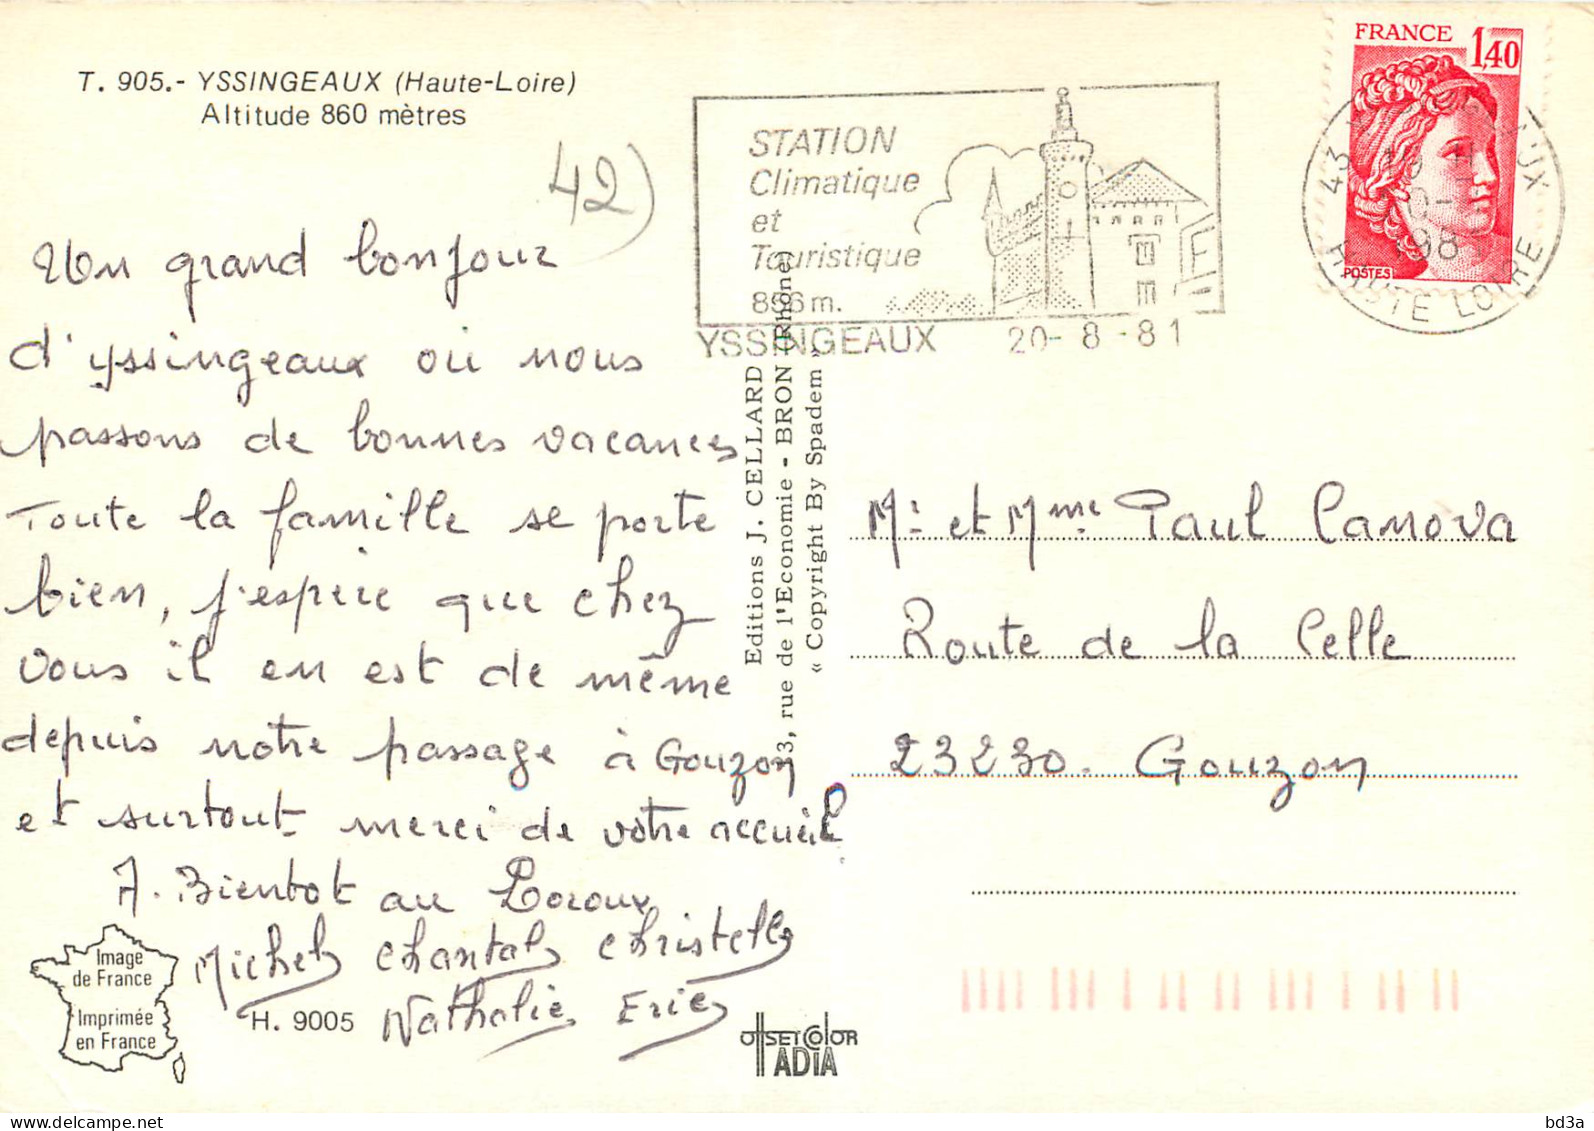 T. 905.- YSSINGEAUX (Haute-Loire)
Altitude 860 mètres
42)
STATION
Climatique
et
Touristique
856 m.
YSSINGEAUX 20-8-81
FRANCE 1,40
POSTES
43
UX
HAUTE LOIRE
Un grand bonjour
d'yssingeaux ou nous
passons de bonnes vacances
Toute la famille se porte
bien, j'espère que chez
vous il en est de même
depuis notre passage à Gouzon
et surtout merci de votre accueil
A. Bientot au
Michel Chantal Christelle
Nathalie Eric
Editions J. CELLARD
3, rue de l'Economie - BRON (Rhône)
« Copyright By Spadem »
Mr et Mme Paul Canova
Route de la Celle
23230. Gouzon
Image
de France
Imprimée
en France
H. 9005
OFFSET COLOR
ADIA
delcampe.net
bd3a